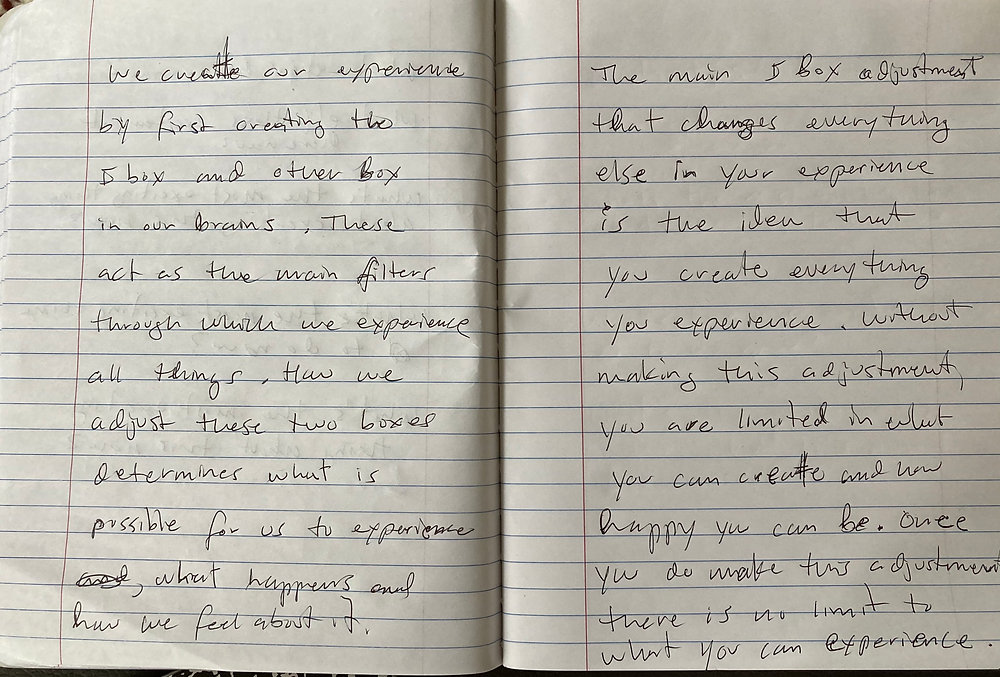 We create our experience
by first creating the
I box and other box
in our brains, These
act as the main filters
through which we experience
all things, How we
adjust these two boxes
determines what is
possible for us to experience
and, what happens and
how we feel about it.
The main I box adjustment
that changes everything
else in your experience
is the idea that
you create everything
you experience. Without
making this adjustment,
you are limited in what
you can create and how
happy you can be. Once
you do make this adjustment
there is no limit to
what you can experience.